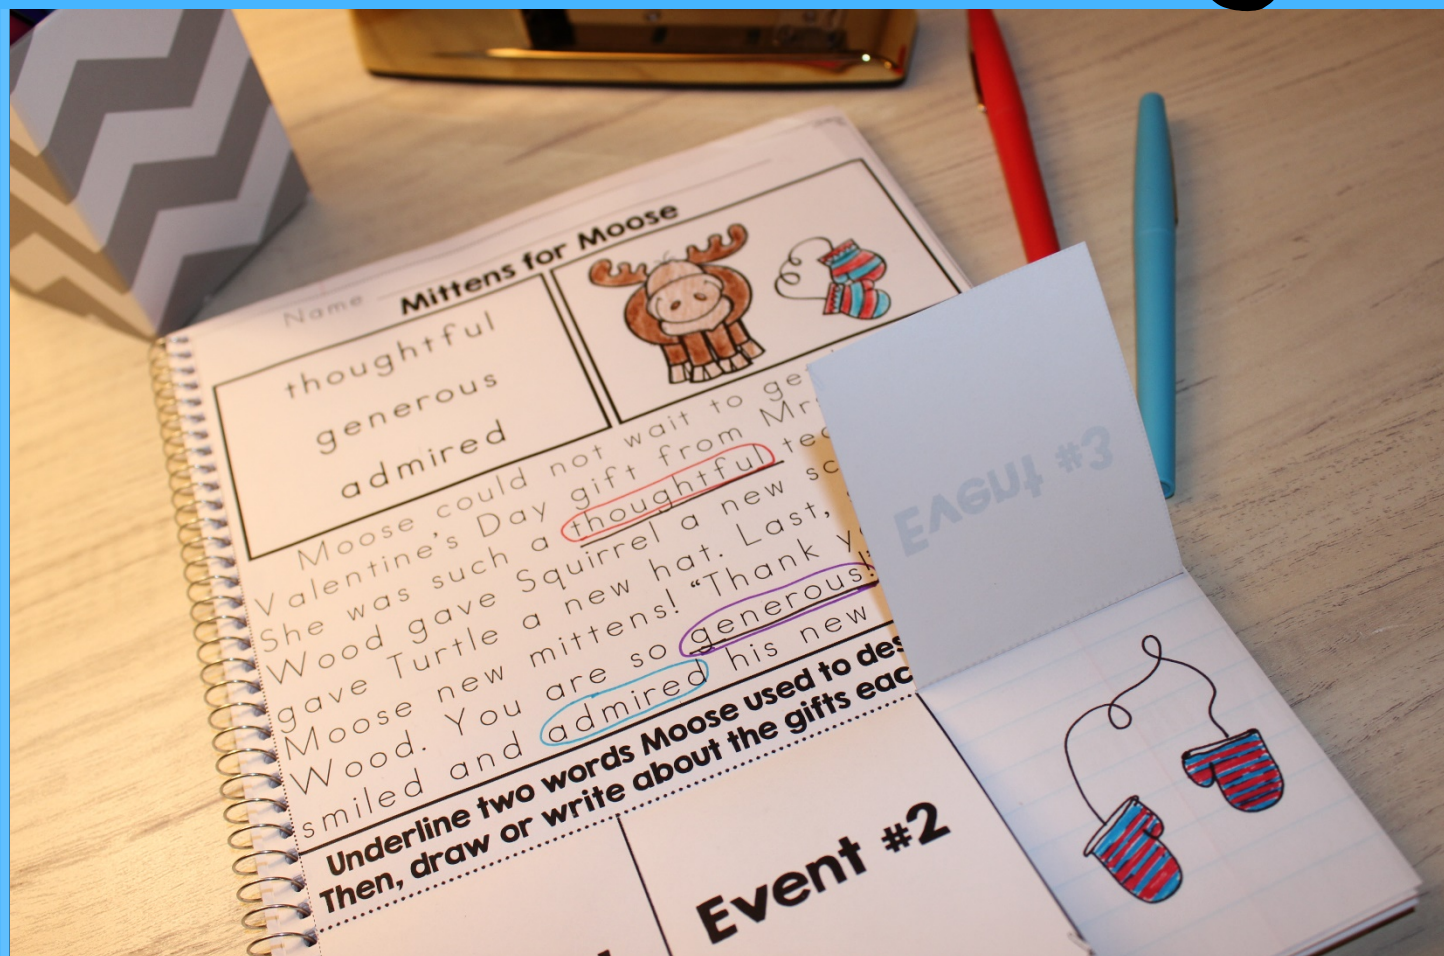 Name
Mittens for Moose
thoughtful
generous
admired
Moose could not wait to
Valentine's Day gift from
She was such a thoughtful
Wood gave Squirrel a new
gave Turtle a new hat. Last,
Moose new mittens! “Thank
Wood. You are so generous!
smiled and admired his new
Underline two words Moose used to
Then, draw or write about the gifts
Event #2
Event #3